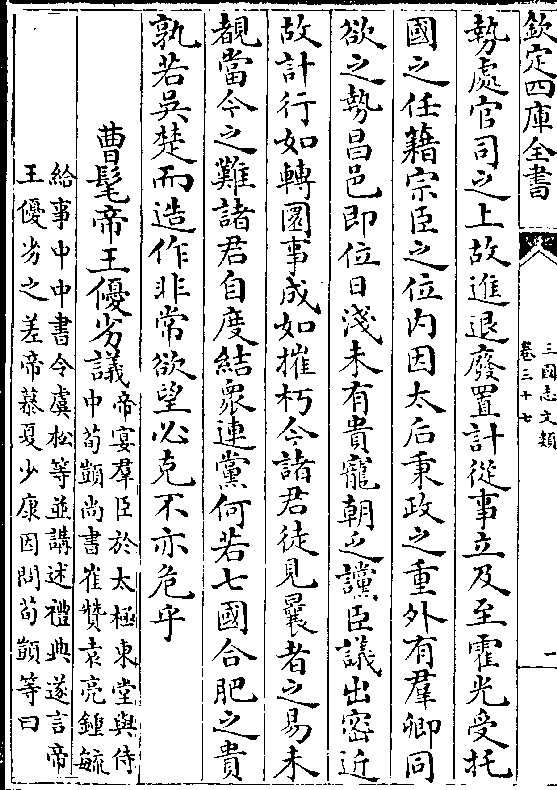 欽定四庫全書
三國志文類
卷三十七
一
勢處官司之上故進退廢置計從事立及至霍光受托
國之任藉宗臣之位内因太后秉政之重外有羣卿同
欲之勢昌邑即位日淺未有貴寵朝乏讜臣議出密近
故計行如轉圜事成如摧朽今諸君徒見曩者之易未
覩當今之難諸君自度結衆連黨何若七國合肥之貴
孰若吳楚而造作非常欲望必克不亦危乎
曹髦帝王優劣議帝宴羣臣於太極東堂與侍
中荀顗尚書崔贊袁亮鍾毓
給事中中書令虞松等並講述禮典遂言帝
王優劣之差帝慕夏少康因問荀顗等曰